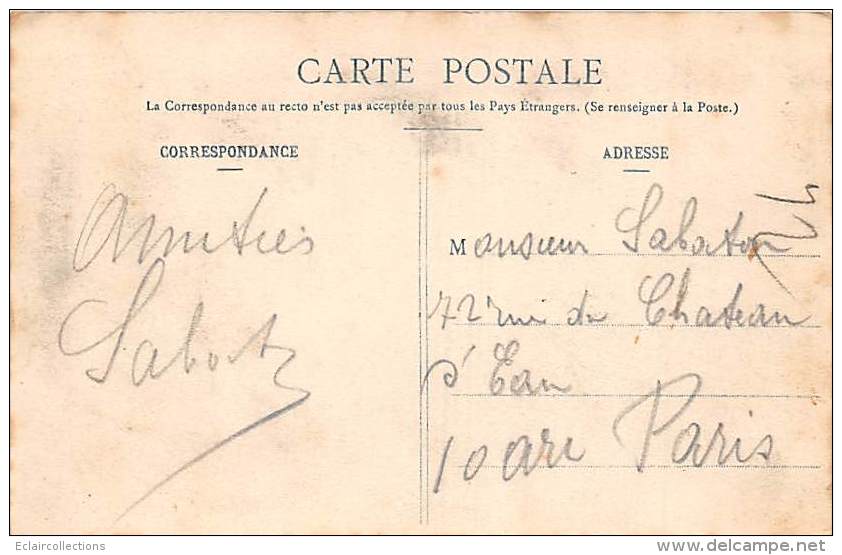 CARTE POSTALE
La Correspondance au recto n'est pas acceptée par tous les Pays Étrangers. (Se renseigner à la Poste.)
CORRESPONDANCE
Amitiés
ADRESSE
Monsieur Sabaton
72 rue du Chateau
d'Eau
10 arr Paris
Eclaircollections
www.delcampe.net